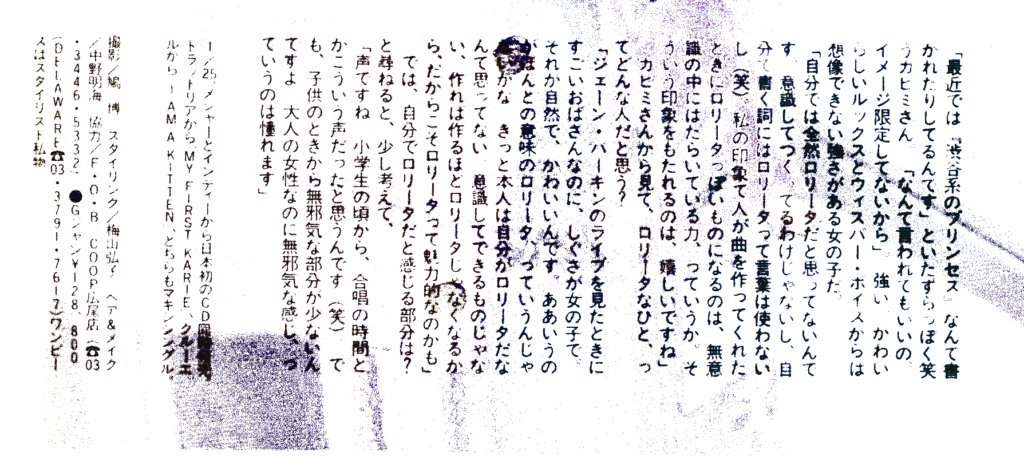 「最近では〝渋谷系のプリンセス〟なんて書
かれたりしてるんです」といたずらっぽく笑
うカヒミさん。「なんて言われてもいいの。
イメージ限定してないから」。強い。かわい
らしいルックスとウィスパー・ボイスからは
想像できない強さがある女の子だ。
「自分では全然ロリータだと思ってないんで
す。意識してつくってるわけじゃないし、自
分で書く詞にはロリータって言葉は使わない
し(笑)。私の印象で人が曲を作ってくれた
ときにロリータっぽいものになるのは、無意
識の中にはたらいている力、っていうか、そ
ういう印象をもたれるのは、嬉しいですね」
カヒミさんから見て、ロリータなひと、っ
てどんな人だと思う?
「ジェーン・バーキンのライブを見たときに
すごいおばさんなのに、しぐさが女の子で。
それが自然で、かわいいんです。ああいうの
がほんとの意味のロリータ、っていうんじゃ
ないかな。きっと本人は自分がロリータだな
んて思ってない。意識してできるものじゃな
い、作れば作るほどロリータじゃなくなるか
ら、だからこそロリータって魅力的なのかも」
では、自分でロリータだと感じる部分は?
と尋ねると、少し考えて、
「声ですね。小学生の頃から、合唱の時間と
かこういう声だったと思うんです(笑)。で
も、子供のときから無邪気な部分が少ないん
ですよ。大人の女性なのに無邪気な感じ、っ
ていうのは憧れます」
1/25メジャーとインディーから日本初のCD同時発売。
トラットリアからMY FIRST KARIE、クルーエ
ルからI AM A KITTEN、どちらもマキシシングル。
撮影/鳩。博 スタイリング/梅山弘子 ヘア&メイク
/中野明海 協力/F・O・B COOP広尾店(☎03
・3446・5332)●GジャンY128,800
(DELAWARE☎03・3791・7617)ワンピー
スはスタイリスト私物